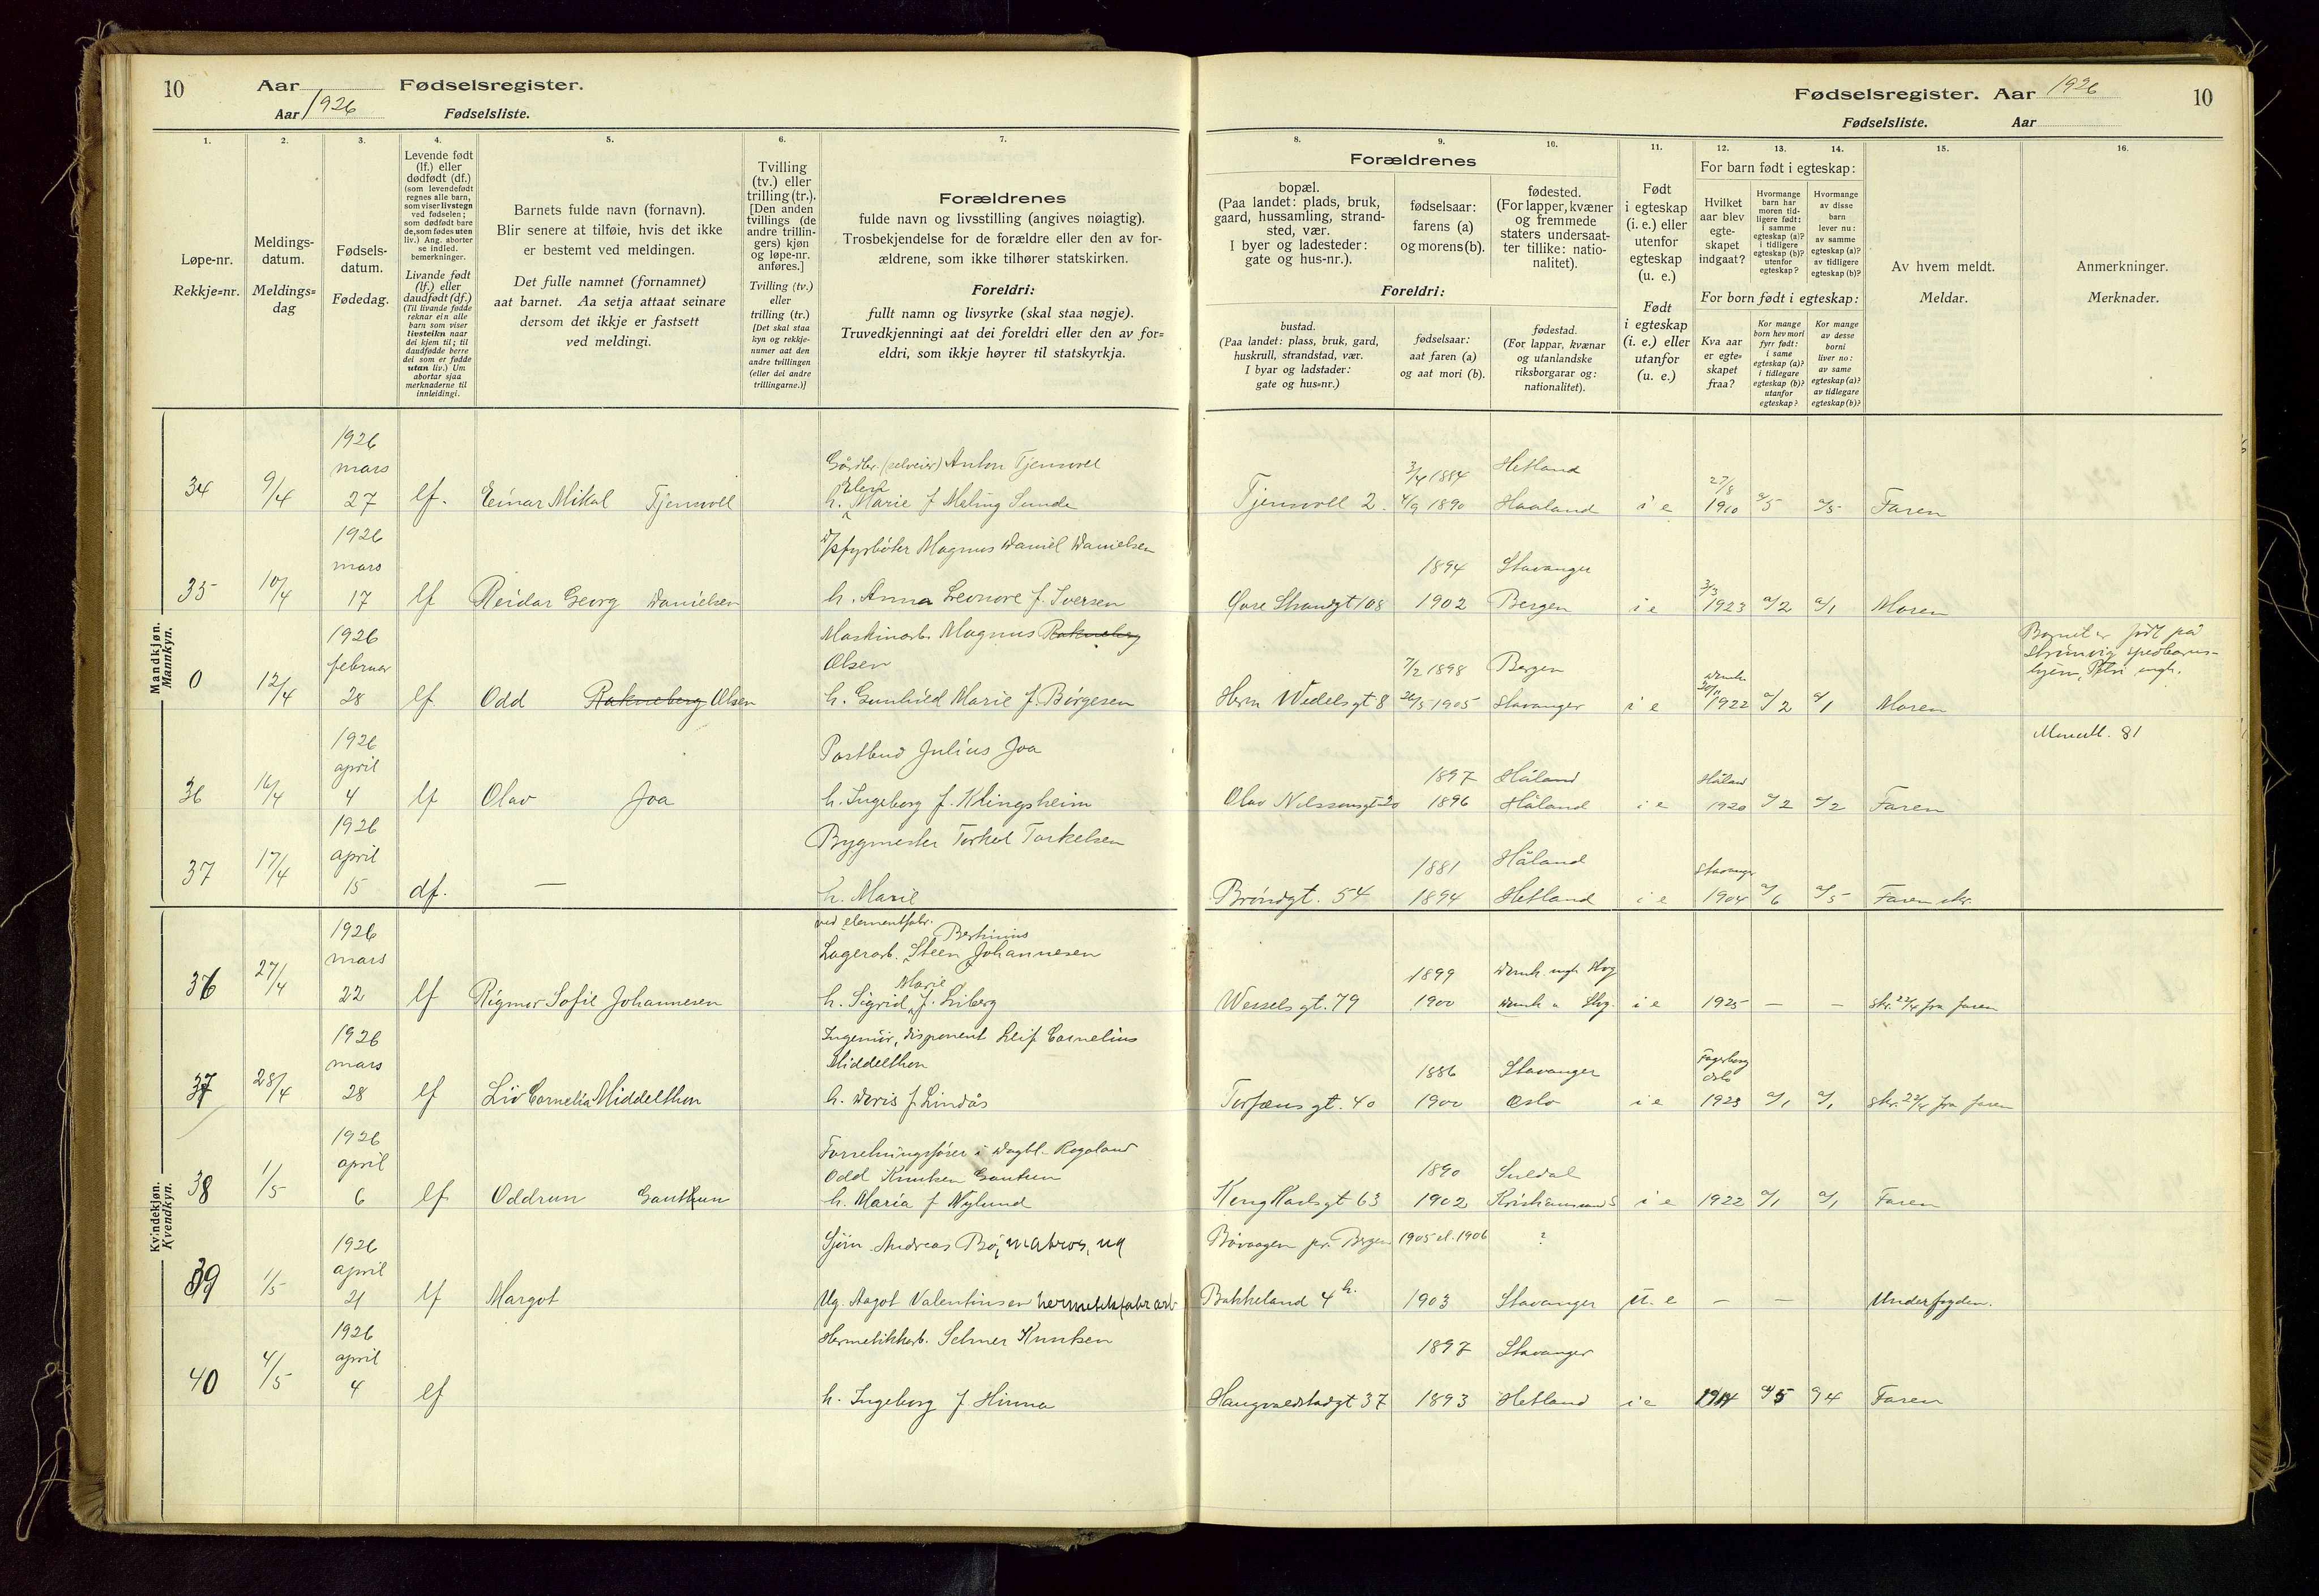 10
Aar
Fødselsregister.
Aar 1926
Fødselsliste.
Fødselsregister. Aar 1926
10
Fødselsliste.
Aar
1.
2.
3.
4.
5.
6.
7.
8.
9.
10.
11.
12.
13.
14.
15.
16.
Løpe-nr.
Rekkje=nr.
Meldings-
datum.
Meldings=
dag
Fødsels-
datum.
Fødedag.
Levende født
(lf.) eller
dødfødt (df.)
(som levendefødt
regnes alle barn,
som viser livstegn
ved fødselen;
som dødfødt bare
de, som fødes uten
liv.) Ang. aborter
se indled.
bemerkninger.
Livande født
(lf.) eller
daudfødt (df.)
(Til livande fødde
reknar ein alle
barn som viser
livsteikn naar
dei kjem til; til
daudfødde berre
dei som er fødde
utan liv.) Um
abortar sjaa
merknaderne til
innleidingi.
Barnets fulde navn (fornavn).
Blir senere at tilføie, hvis det ikke
er bestemt ved meldingen.
Det fulle namnet (fornamnet)
aat barnet. Aa setja attaat seinare
dersom det ikkje er fastsett
ved meldingi.
Tvilling
(tv.) eller
trilling (tr.).
[Den anden
tvillings (de
andre trillin-
gers) kjøn
og løpe-nr.
anføres.]
Tvilling (tv.)
eller
trilling (tr.)
[Det skal staa
kyn og rekkje-
numer aat den
andre tvillingen
(eller dei andre
trillingarne.)]
Forældrenes
fulde navn og livsstilling (angives nøiagtig).
Trosbekjendelse for de forældre eller den av for-
ældrene, som ikke tilhører statskirken.
Foreldri:
fullt namn og livsyrke (skal staa nøgje).
Truvedkjenningi aat dei foreldri eller den av for=
eldri, som ikkje høyrer til statskyrkja.
Forældrenes
bopæl.
(Paa landet: plads, bruk,
gaard, hussamling, strand-
sted, vær.
I byer og ladesteder:
gate og hus-nr.).
fødselsaar:
farens (a)
og morens (b).
fødested.
(For lapper, kvæner
og fremmede
staters undersaat-
ter tillike: natio-
nalitet).
Foreldri:
bustad.
(Paa landet: plass, bruk, gard,
huskrull, strandstad, vær.
I byar og ladstader:
gate og hus=nr.)
fødselsaar:
aat faren (a)
og aat mori (b).
fødestad.
(For lappar, kvænar
og utanlandske
riksborgarar og:
nationalitet).
Født
i egteskap
(i. e.) eller
utenfor
egteskap
(u. e.)
Født
i egteskap
(i. e.) eller
utanfor
(u. e.)
For barn født i egteskap:
Hvilket
aar blev
egte-
skapet
indgaat?
Hvormange
barn har
moren tid-
ligere født:
i samme
egteskap (a)?
i tidligere
egteskap (b)?
utenfor
egteskap?
Hvormange
av disse
barn
lever nu:
av samme
egteskap (a)?
av tidligere
egteskap (b)?
For born født i egteskap:
Kva aar
er egte=
skapet
fraa?
Kor mange
born hev mori
fyrr født:
i same
egteskap (a)?
i tidlegare
egteskap (b)?
utanfor
egteskap?
Kor mange
av desse
borni
liver no:
av same
egteskap (a)?
av tidlegare
egteskap (b)?
Av hvem meldt.
Meldar.
Anmerkninger.
Merknader.
Mandkjøn.
Mannkyn.
1926
mars
Gårdbr. (selveier) Anton Tjensvoll
3/4 1884 Hetland
27/8
34 9/4 27 lf. Einar Mikal Tjensvoll
h. Elen Marie f Meling Sunde
Tjensvoll 2. 4/9 1890 Haaland i e 1910 a/5 a/5 Faren
1926
mars
D/S fyrbøter Magnus Daniel Danielsen
1894 Stavanger
3/3
35 10/4 17 lf Reidar Georg Danielsen
h. Anna Leonore f. Iversen
Øvre Strandgt 108 1902 Bergen i e 1923 a/2 a/1 Moren
1926
februar
Maskinarb. Magnus Rakneberg
Olsen
7/2 1898 Bergen
Barnet er født på
hjem,
0 12/4 28 lf Odd Rakneberg Olsen
h. Gunhild Marie f. Børgesen
Herm Wedels gt 8 26/5 1905 Stavanger i e 20/11 1922 a/2 a/1 Moren
81
1926
april
Postbud Julius Joa
1897 Håland
Håland
36 16/4 4 lf Olav Joa
h. Ingeborg f. Klingsheim
Olav Nilssonsgt 20 1896 Håland i e 1920 a/2 a/2 Faren
1926
april
Bygmester Torkel Torkelsen
1881 Håland
Stavanger
37 17/4 15 df. —
h. Marie
Brøndgt. 54 1894 Hetland i e 1904 a/6 a/5 Faren skr.
Kvindekjøn.
Kvendkyn.
1926
mars
ved elementfabr.
Lagerarb. Steen Bertinius Johannesen
1899
36 27/4 22 lf Rigmor Sofie Johannesen
h. Sigrid Marie f. Liberg
Wessels gt. 79 1900 i e 1925 — — skr. 22/4 fra faren
1926
mars
Ingeniør, disponent Leif Cornelius
Middelthon
1886 Stavanger
Fagerborg
Oslo
37 28/4 28 lf Liv Cornelia Middelthon
h. Doris f Lindås
Torfæus gt. 40 1900 Oslo i e 1923 a/1 a/1 skr. 22/4 fra faren
1926
april
Forretningsfører i Dagbl. Rogaland
Odd Knutsen Gautun
1890 Suldal
38 1/5 6 lf Oddrun Gauthun
h. Maria f Nylund
Kong Karls gt 63 1902 Kristiansand S i e 1922 a/1 a/1 Faren
1926
april
Sjøm. Andreas Bø, matros, ug
Bøvaagen pr. Bergen 1905 el. 1906 ?
39 1/5 21 lf Margot
Ug. Aagot Valentinsen hermetikfabr arb
Bakkeland 4 h. 1903 Stavanger u. e — — Underfogden.
1926
april
Hermetikkarb. Selmer Knutsen
1897 Stavanger
40 4/5 4 lf
h. Ingeborg f. Hinna
Haugvaldstadgt 37 1893 Hetland i e 1914 a/5 a/4 Faren